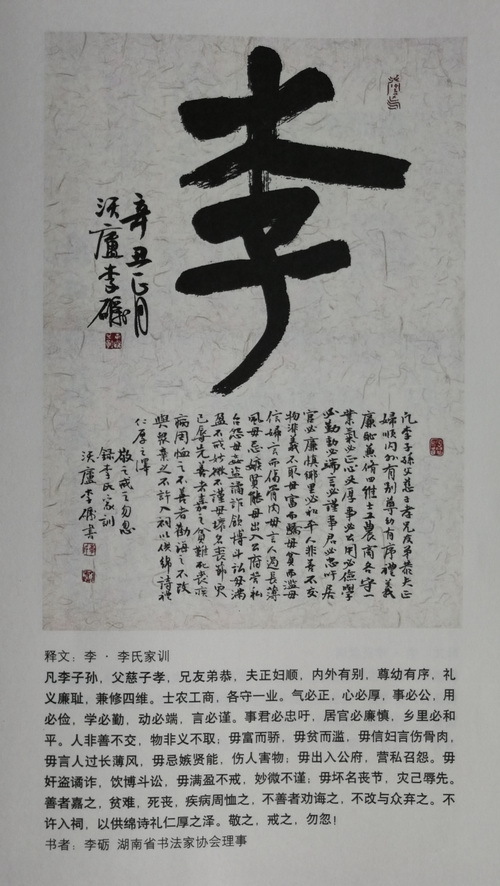 李
辛丑正月
沃廬李礪
凡李子孙父慈子孝兄友弟恭夫正
婦順内外有别尊幼有序禮義
廉耻兼修四维士工農商各守一
業氣必正心必厚事必公用必儉學
必勤動必端言必謹事君必忠吁居
官必廉慎鄉里必和平人非善不交
物非義不取毋富而驕毋貧而濫毋
信婦言而傷骨肉毋言人過長薄
風毋忌嫉賢能毋出入公府营私
召怨毋奸盗譎诈飲博斗讼毋满
盈不戒妙微不謹毋壞名喪節灾
己辱先善者嘉之貧難死喪疾
病周恤之不善者勸诲之不改
與衆棄之不許入祠以供绵詩禮
仁厚之澤
敬之戒之勿忽
録李氏家訓
沃廬李礪書
释文：李·李氏家训
凡李子孙，父慈子孝，兄友弟恭，夫正妇顺，内外有别，尊幼有序，礼
义廉耻，兼修四维。士农工商，各守一业。气必正，心必厚，事必公，用
必俭，学必勤，动必端，言必谨。事君必忠吁，居官必廉慎，乡里必和
平。人非善不交，物非义不取；毋富而骄，毋贫而滥，毋信妇言伤骨肉，
毋言人过长薄风，毋忌嫉贤能，伤人害物；毋出入公府，营私召怨。毋
奸盗谲诈，饮博斗讼，毋满盈不戒，妙微不谨；毋坏名丧节，灾己辱先。
善者嘉之，贫难，死丧，疾病周恤之，不善者劝诲之，不改与众弃之。不
许入祠，以供绵诗礼仁厚之泽。敬之，戒之，勿忽！
书者：李砺 湖南省书法家协会理事